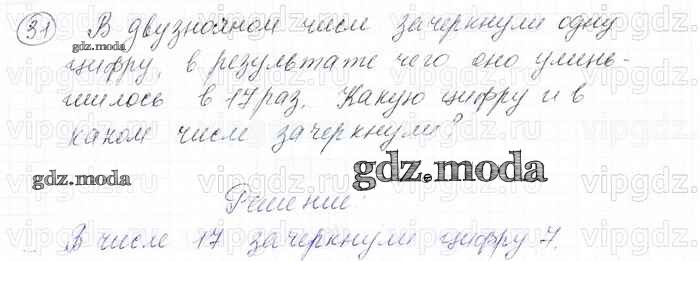 31 В двузначном числе зачеркнули одну
gdz.moda
цифру, в результате чего оно умень-
шилось в 17 раз. Какую цифру и в
каком числе зачеркнули?
gdz.moda
gdz.moda
Решение:
В числе 17 зачеркнули цифру 7.
vipgdz